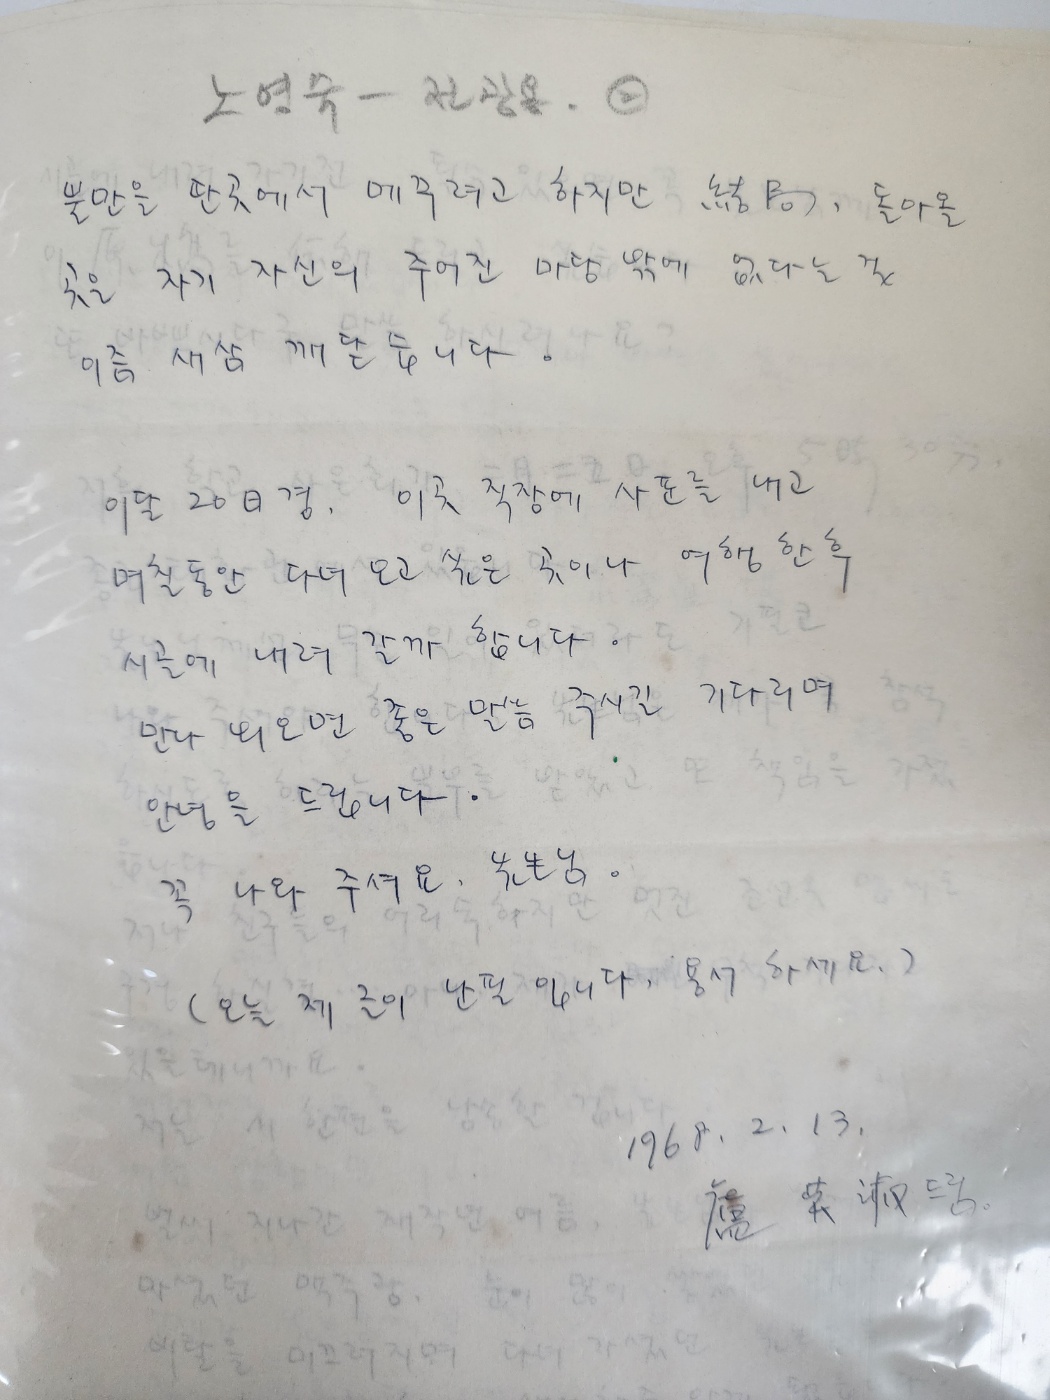 노영숙 - 전광용. ②
불만을 딴곳에서 메꾸려고 하지만 結局, 돌아올
곳은 자기 자신의 주어진 마당 밖에 없다는 걸
이즘 새삼 깨닫습니다.
이달 20日경, 이곳 직장에 사표를 내고
며칠동안 다녀 오고 싶은 곳이나 여행 한 후
시골에 내려 갈까 합니다.
만나 뵈오면 좋은 말씀 주시길 기다리며
안녕을 드립니다.
꼭 나와 주셔요. 先生님.
(오늘 제 글이 난필 입니다. 용서 하세요.)
1968. 2. 13.
盧英淑 드림.